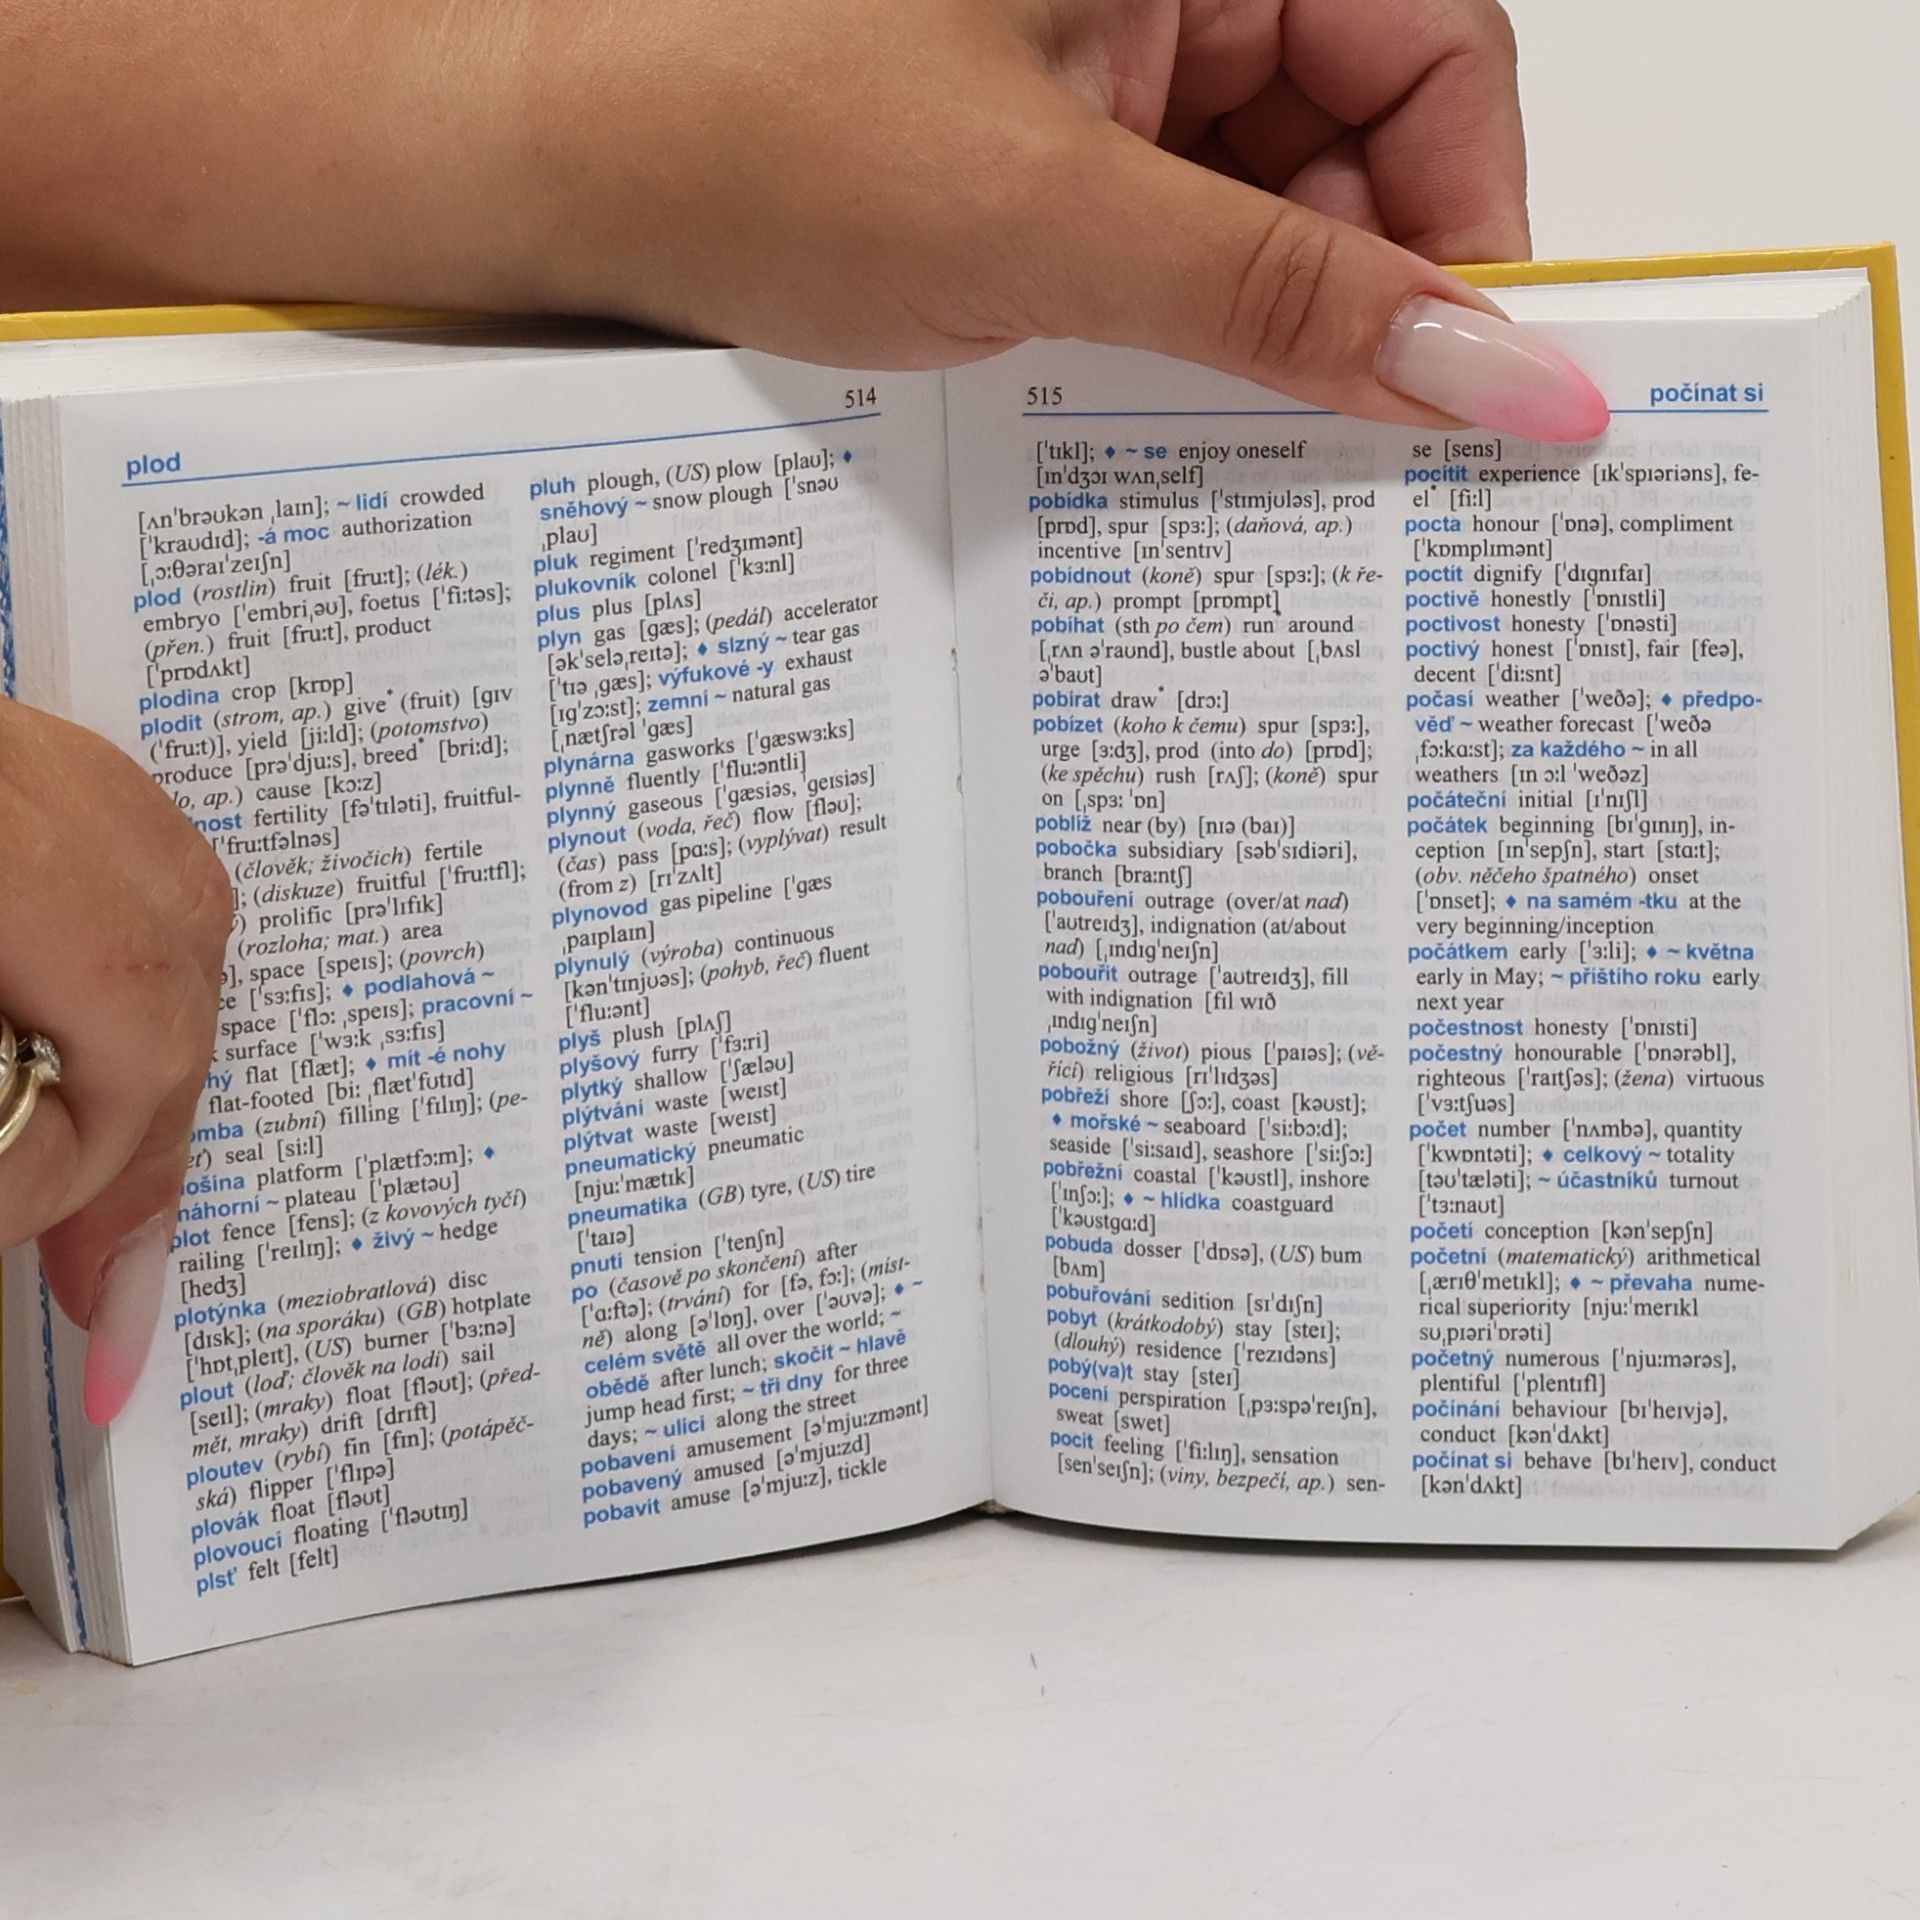 514
plod
[ʌnˈbrəʊkən ˌlaɪn]; ~ lidí crowded
[ˈkraʊdɪd]; -á moc authorization
[ˌɔ:θəraɪˈzeɪʃn]
plod (rostlin) fruit [fru:t]; (lék.)
embryo [ˈembriˌəʊ], foetus [ˈfi:təs];
(přen.) fruit [fru:t], product
[ˈprɒdʌkt]
plodina crop [krɒp]
plodit (strom, ap.) give* (fruit) [gɪv
(ˈfru:t)], yield [ji:ld]; (potomstvo)
produce [prəˈdju:s], breed* [bri:d];
lo, ap.) cause [kɔ:z]
nost fertility [fəˈtɪləti], fruitful-
[ˈfru:tfəlnəs]
(člověk; živočich) fertile
]; (diskuze) fruitful [ˈfru:tfl];
) prolific [prəˈlɪfɪk]
(rozloha; mat.) area
], space [speɪs]; (povrch)
ce [ˈsɜ:fɪs]; ♦ podlahová ~
space [ˈflɔ: ˌspeɪs]; pracovní ~
k surface [ˈwɜ:k ˌsɜ:fɪs]
hý flat [flæt]; ♦ mít -é nohy
flat-footed [bi: ˌflætˈfʊtɪd]
omba (zubní) filling [ˈfɪlɪŋ]; (pe-
eť) seal [si:l]
lošina platform [ˈplætfɔ:m]; ♦
náhorní ~ plateau [ˈplætəʊ]
plot fence [fens]; (z kovových tyčí)
railing [ˈreɪlɪŋ]; ♦ živý ~ hedge
[hedʒ]
plotýnka (meziobratlová) disc
[dɪsk]; (na sporáku) (GB) hotplate
[ˈhɒtˌpleɪt], (US) burner [ˈbɜ:nə]
plout (loď; člověk na lodi) sail
[seɪl]; (mraky) float [fləʊt]; (před-
mět, mraky) drift [drɪft]
ploutev (rybí) fin [fɪn]; (potápěč-
ská) flipper [ˈflɪpə]
plovák float [fləʊt]
plovoucí floating [ˈfləʊtɪŋ]
plsť felt [felt]
pluh plough, (US) plow [plaʊ]; ♦
sněhový ~ snow plough [ˈsnəʊ
ˌplaʊ]
pluk regiment [ˈredʒɪmənt]
plukovník colonel [ˈkɜ:nl]
plus plus [plʌs]
plyn gas [gæs]; (pedál) accelerator
[əkˈseləˌreɪtə]; ♦ slzný ~ tear gas
[ˈtɪə ˌgæs]; výfukové -y exhaust
[ɪgˈzɔ:st]; zemní ~ natural gas
[ˌnætʃrəl ˈgæs]
plynárna gasworks [ˈgæswɜ:ks]
plynně fluently [ˈflu:əntli]
plynný gaseous [ˈgæsiəs, ˈgeɪsiəs]
plynout (voda, řeč) flow [fləʊ];
(čas) pass [pɑ:s]; (vyplývat) result
(from z) [rɪˈzʌlt]
plynovod gas pipeline [ˈgæs
ˌpaɪplaɪn]
plynulý (výroba) continuous
[kənˈtɪnjʊəs]; (pohyb, řeč) fluent
[ˈflu:ənt]
plyš plush [plʌʃ]
plyšový furry [ˈfɜ:ri]
plytký shallow [ˈʃæləʊ]
plýtvání waste [weɪst]
plýtvat waste [weɪst]
pneumatický pneumatic
[nju:ˈmætɪk]
pneumatika (GB) tyre, (US) tire
[ˈtaɪə]
pnutí tension [ˈtenʃn]
po (časově po skončení) after
[ˈɑ:ftə]; (trvání) for [fə, fɔ:]; (míst-
ně) along [əˈlɒŋ], over [ˈəʊvə]; ♦ ~
celém světě all over the world; ~
obědě after lunch; skočit ~ hlavě
jump head first; ~ tři dny for three
days; ~ ulici along the street
pobavení amusement [əˈmju:zmənt]
pobavený amused [əˈmju:zd]
pobavit amuse [əˈmju:z], tickle
515
počínat si
[ˈtɪkl]; ♦ ~ se enjoy oneself
[ɪnˈdʒɔɪ wʌnˌself]
pobídka stimulus [ˈstɪmjʊləs], prod
[prɒd], spur [spɜ:]; (daňová, ap.)
incentive [ɪnˈsentɪv]
pobídnout (koně) spur [spɜ:]; (k ře-
či, ap.) prompt [prɒmpt]
pobíhat (sth po čem) run around
[ˌrʌn əˈraʊnd], bustle about [ˌbʌsl
əˈbaʊt]
pobírat draw* [drɔ:]
pobízet (koho k čemu) spur [spɜ:],
urge [ɜ:dʒ], prod (into do) [prɒd];
(ke spěchu) rush [rʌʃ]; (koně) spur
on [ˌspɜ: ˈɒn]
poblíž near (by) [nɪə (baɪ)]
pobočka subsidiary [səbˈsɪdiəri],
branch [brɑ:ntʃ]
pobouření outrage (over/at nad)
[ˈaʊtreɪdʒ], indignation (at/about
nad) [ˌɪndɪgˈneɪʃn]
pobouřit outrage [ˈaʊtreɪdʒ], fill
with indignation [fɪl wɪð
ˌɪndɪgˈneɪʃn]
pobožný (život) pious [ˈpaɪəs]; (vě-
řící) religious [rɪˈlɪdʒəs]
pobřeží shore [ʃɔ:], coast [kəʊst];
♦ mořské ~ seaboard [ˈsi:bɔ:d];
seaside [ˈsi:saɪd], seashore [ˈsi:ʃɔ:]
pobřežní coastal [ˈkəʊstl], inshore
[ˈɪnʃɔ:]; ♦ ~ hlídka coastguard
[ˈkəʊstgɑ:d]
pobuda dosser [ˈdɒsə], (US) bum
[bʌm]
pobuřování sedition [sɪˈdɪʃn]
pobyt (krátkodobý) stay [steɪ];
(dlouhý) residence [ˈrezɪdəns]
pobý(va)t stay [steɪ]
pocení perspiration [ˌpɜ:spəˈreɪʃn],
sweat [swet]
pocit feeling [ˈfi:lɪŋ], sensation
[senˈseɪʃn]; (viny, bezpečí, ap.) sen-
se [sens]
pocítit experience [ɪkˈspɪəriəns], fe-
el* [fi:l]
pocta honour [ˈɒnə], compliment
[ˈkɒmplɪmənt]
poctít dignify [ˈdɪgnɪfaɪ]
poctivě honestly [ˈɒnɪstli]
poctivost honesty [ˈɒnəsti]
poctivý honest [ˈɒnɪst], fair [feə],
decent [ˈdi:snt]
počasí weather [ˈweðə]; ♦ předpo-
věď ~ weather forecast [ˈweðə
ˌfɔ:kɑ:st]; za každého ~ in all
weathers [ɪn ɔ:l ˈweðəz]
počáteční initial [ɪˈnɪʃl]
počátek beginning [bɪˈgɪnɪŋ], in-
ception [ɪnˈsepʃn], start [stɑ:t];
(obv. něčeho špatného) onset
[ˈɒnset]; ♦ na samém -tku at the
very beginning/inception
počátkem early [ˈɜ:li]; ♦ ~ května
early in May; ~ příštího roku early
next year
počestnost honesty [ˈɒnɪsti]
počestný honourable [ˈɒnərəbl],
righteous [ˈraɪtʃəs]; (žena) virtuous
[ˈvɜ:tʃuəs]
počet number [ˈnʌmbə], quantity
[ˈkwɒntəti]; ♦ celkový ~ totality
[təʊˈtæləti]; ~ účastníků turnout
[ˈtɜ:naʊt]
početí conception [kənˈsepʃn]
početní (matematický) arithmetical
[ˌærɪθˈmetɪkl]; ♦ ~ převaha nume-
rical superiority [nju:ˈmerɪkl
sʊˌpɪəriˈɒrəti]
početný numerous [ˈnju:mərəs],
plentiful [ˈplentɪfl]
počínání behaviour [bɪˈheɪvjə],
conduct [kənˈdʌkt]
počínat si behave [bɪˈheɪv], conduct
[kənˈdʌkt]